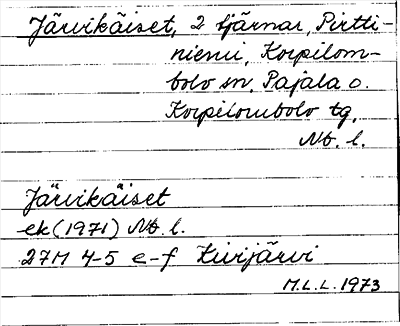 Järvikäiset, 2 tjärnar, Pirtti-
niemi, Korpilom-
bolo sn, Pajala o.
Korpilombolo tg,
Nb. l.
Järvikäiset
ek (1971) Nb. l.
27M 4-5 e-f Kivijärvi
M.L.L. 1973